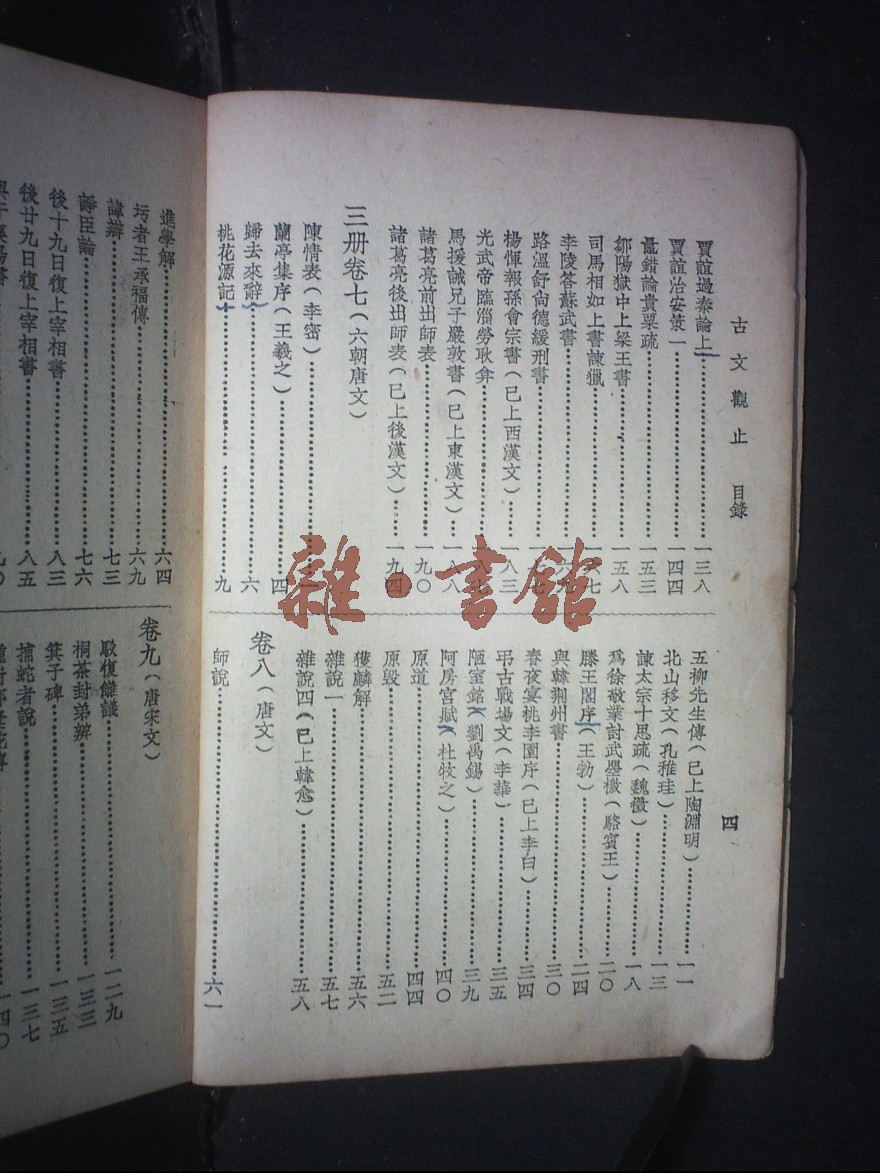 古文觀止 目錄
四
賈誼過秦論上……一三八
賈誼治安策一……一四四
鼂錯論貴粟疏……一五三
鄒陽獄中上梁王書……一五八
司馬相如上書諫獵……六七
李陵答蘇武書……一六九
路溫舒尙德緩刑書……七七
楊惲報孫會宗書(已上西漢文)……一八三
光武帝臨淄勞耿弇……八七
馬援誡兄子嚴敦書(已上東漢文)……一八八
諸葛亮前出師表……一九〇
諸葛亮後出師表(已上後漢文)……一九四
三册卷七(六朝唐文)
陳情表(李密)……一
蘭亭集序(王羲之)……四
歸去來辭……六
桃花源記……九
五柳先生傳(已上陶淵明)……一一
北山移文(孔稚珪)……一三
諫太宗十思疏(魏徵)……一八
爲徐敬業討武曌檄(駱賓王)……二〇
滕王閣序(王勃)……二四
與韓荆州書……三〇
春夜宴桃李園序(已上李白)……三四
弔古戰場文(李華)……三五
陋室銘(劉禹錫)……三九
阿房宮賦(杜牧之)……四〇
原道……四四
原毀……五二
獲麟解……五六
雜說一……五七
雜說四(已上韓愈)……五八
卷八(唐文)
師說……六一
進學解……六四
圬者王承福傳……六九
諱辯……七三
諍臣論……七六
後十九日復上宰相書……八三
後廿九日復上宰相書……八五
九〇
卷九(唐宋文)
駁復讎議……一二九
桐葉封弟辨……一三三
箕子碑……一三五
捕蛇者說……一三七
一四〇
雜·書館